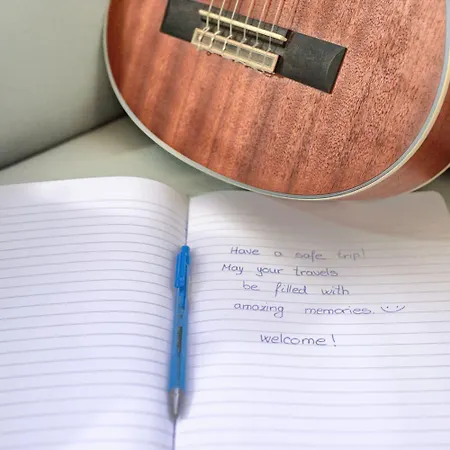 Have a safe trip!
May your travels
be filled with
amazing memories.
welcome!